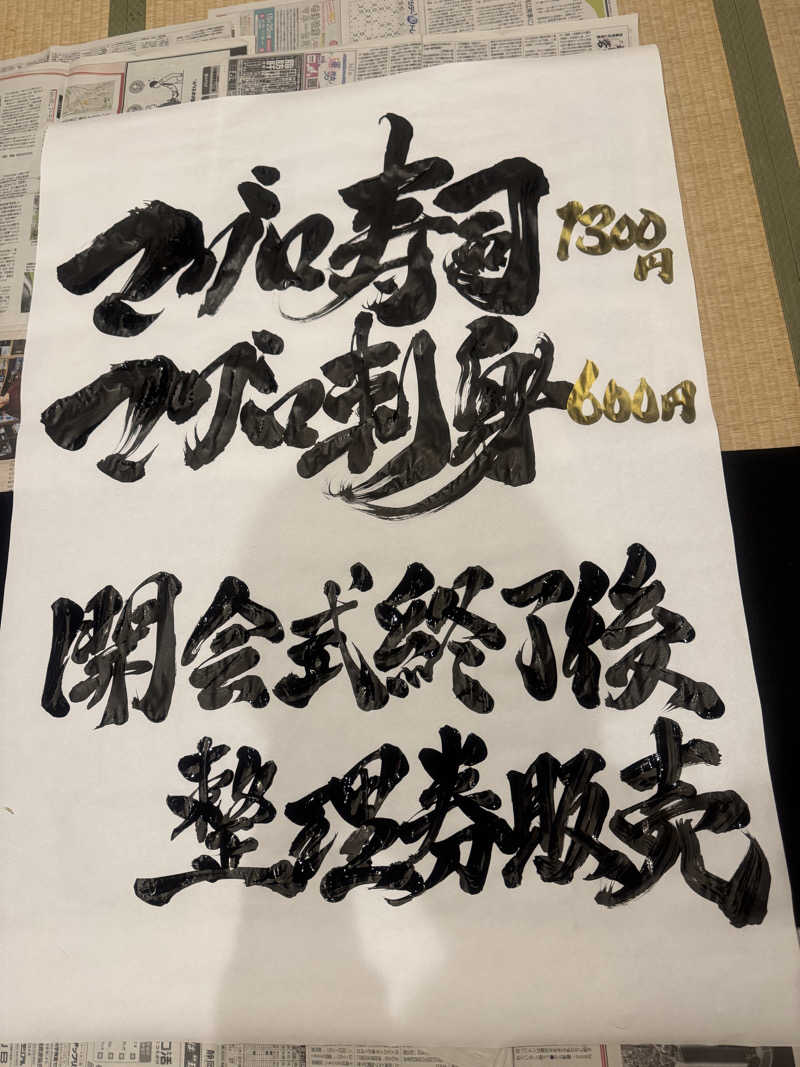 マグロ寿司 1300円
マグロ刺身 600円
開会式終了後
整理券販売